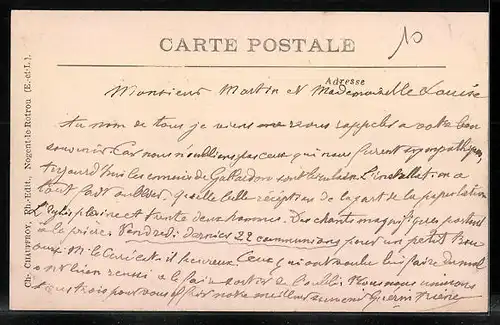 CARTE POSTALE
10
Adresse
Monsieur Martin et Mademoiselle Louise
Au nom de tous je viens vous rappeler a votre bon
souvenir Car nous n'oublions pas ceux qui nous furent sympathiques
aujourd'hui les
tout fait oublier. quelle belle réception de la part de la population
L'église pleine et trente deux hommes. Des chants magnifiques portent
à la prière. Vendredi dernier 22 communions pour un petit
aussi M. le Curé est il heureux Ceux qui ont voulu lui faire du mal
ont bien reussi a le faire sortir de l'oubli. Nous nous unissons
tous trois pour vous offrir notre meilleur souvenir
Ch. CHAUFFROY, Ph-Edit., Nogent-le-Rotrou (E.-et-L.).